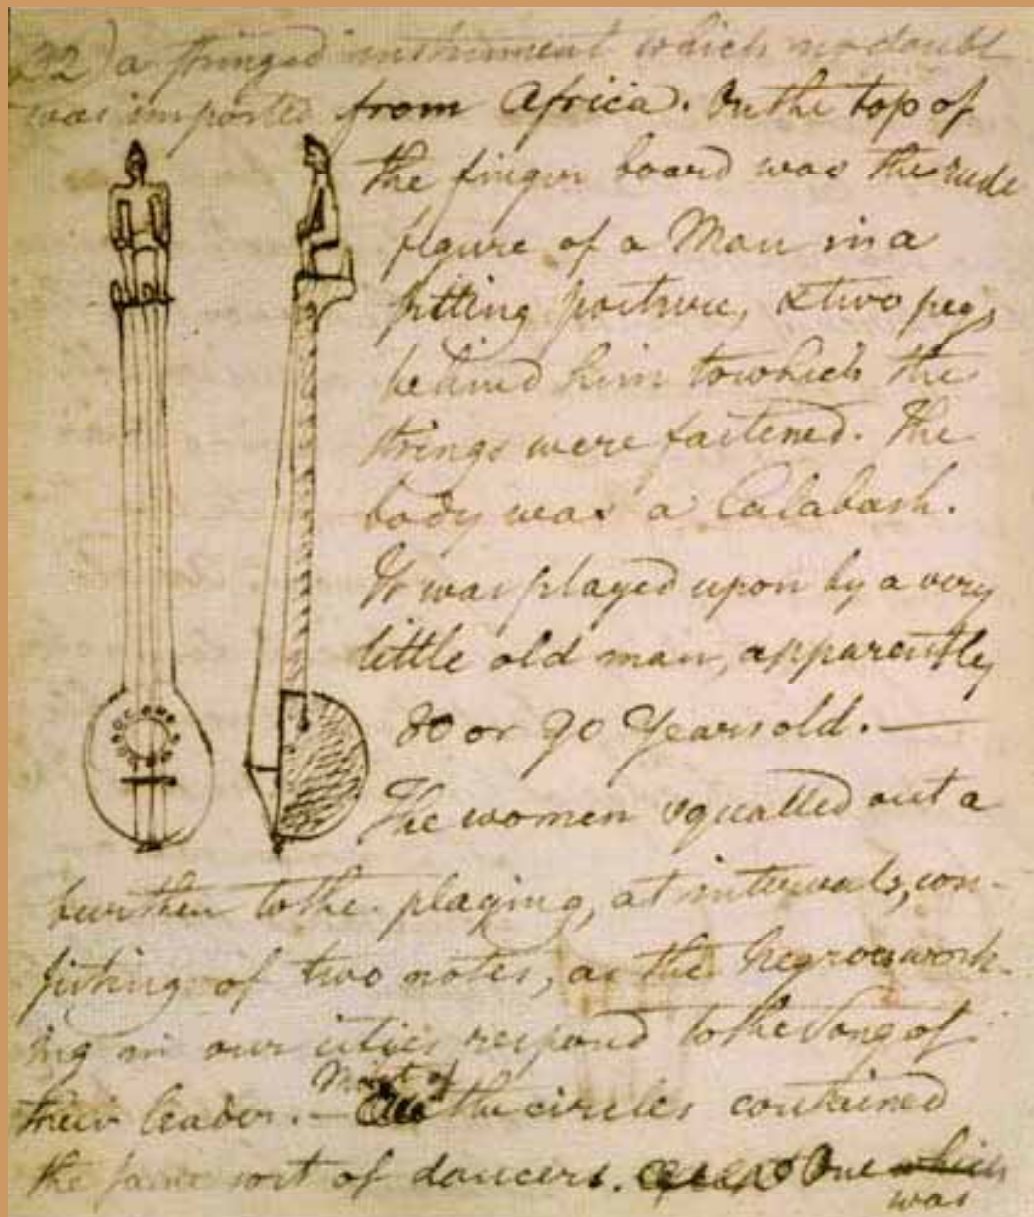 32) a stringed instrument which no doubt
was imported from Africa. On the top of
the finger board was the rude
figure of a Man in a
sitting posture, & two pegs
behind him to which the
strings were fastened. The
body was a Calabash.
It was played upon by a very
little old man, apparently
80 or 90 Years old. —
The women squalled out a
burthen to the playing, at intervals, con-
sisting of two notes, as the Negroes work-
ing in our cities respond to the Song of
their leader. — Most of
the circles contained
the same sort of dancers. One which
was